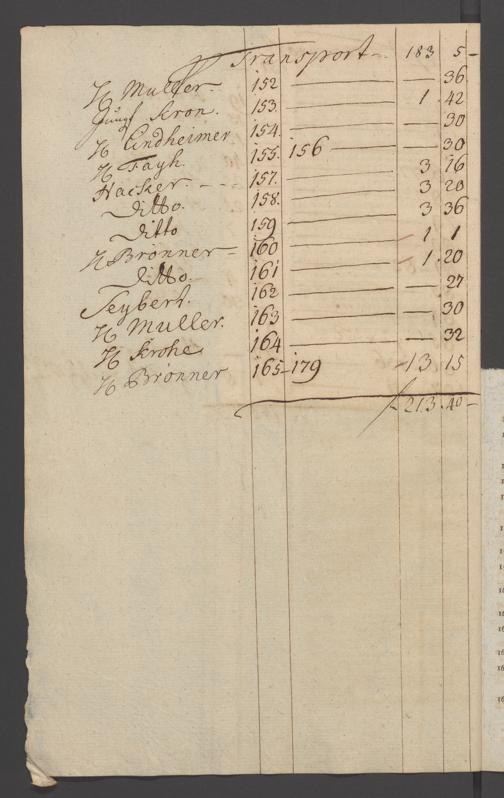 Transport 183 5
H Muller. 152 — 36
Jungf Kron. 153. 1. 42
H Lindheimer 154. — 30
H Fayh. 155. 156 — 30
Hacker. 157. 3 16
Ditto. 158. 3 20
Ditto 159 3 36
H Brönner 160 1 1
Ditto. 161 1. 20
Seybert. 162 — 27
H Muller. 163 — 30
H Krohe 164 — 32
H Brönner 165-179 13 15
f 213. 40